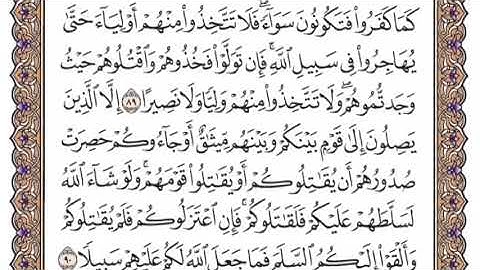 كَمَا كَفَرُوا۟ فَتَكُونُونَ سَوَآءً ۖ فَلَا تَتَّخِذُوا۟ مِنْهُمْ أَوْلِيَآءَ حَتَّىٰ
يُهَاجِرُوا۟ فِى سَبِيلِ ٱللَّهِ ۚ فَإِن تَوَلَّوْا۟ فَخُذُوهُمْ وَٱقْتُلُوهُمْ حَيْثُ
وَجَدتُّمُوهُمْ ۖ وَلَا تَتَّخِذُوا۟ مِنْهُمْ وَلِيًّا وَلَا نَصِيرًا ٨٩ إِلَّا ٱلَّذِينَ
يَصِلُونَ إِلَىٰ قَوْمٍۭ بَيْنَكُمْ وَبَيْنَهُم مِّيثَٰقٌ أَوْ جَآءُوكُمْ حَصِرَتْ
صُدُورُهُمْ أَن يُقَٰتِلُوكُمْ أَوْ يُقَٰتِلُوا۟ قَوْمَهُمْ ۚ وَلَوْ شَآءَ ٱللَّهُ
لَسَلَّطَهُمْ عَلَيْكُمْ فَلَقَٰتَلُوكُمْ ۚ فَإِنِ ٱعْتَزَلُوكُمْ فَلَمْ يُقَٰتِلُوكُمْ
وَأَلْقَوْا۟ إِلَيْكُمُ ٱلسَّلَمَ فَمَا جَعَلَ ٱللَّهُ لَكُمْ عَلَيْهِمْ سَبِيلًا ٩٠